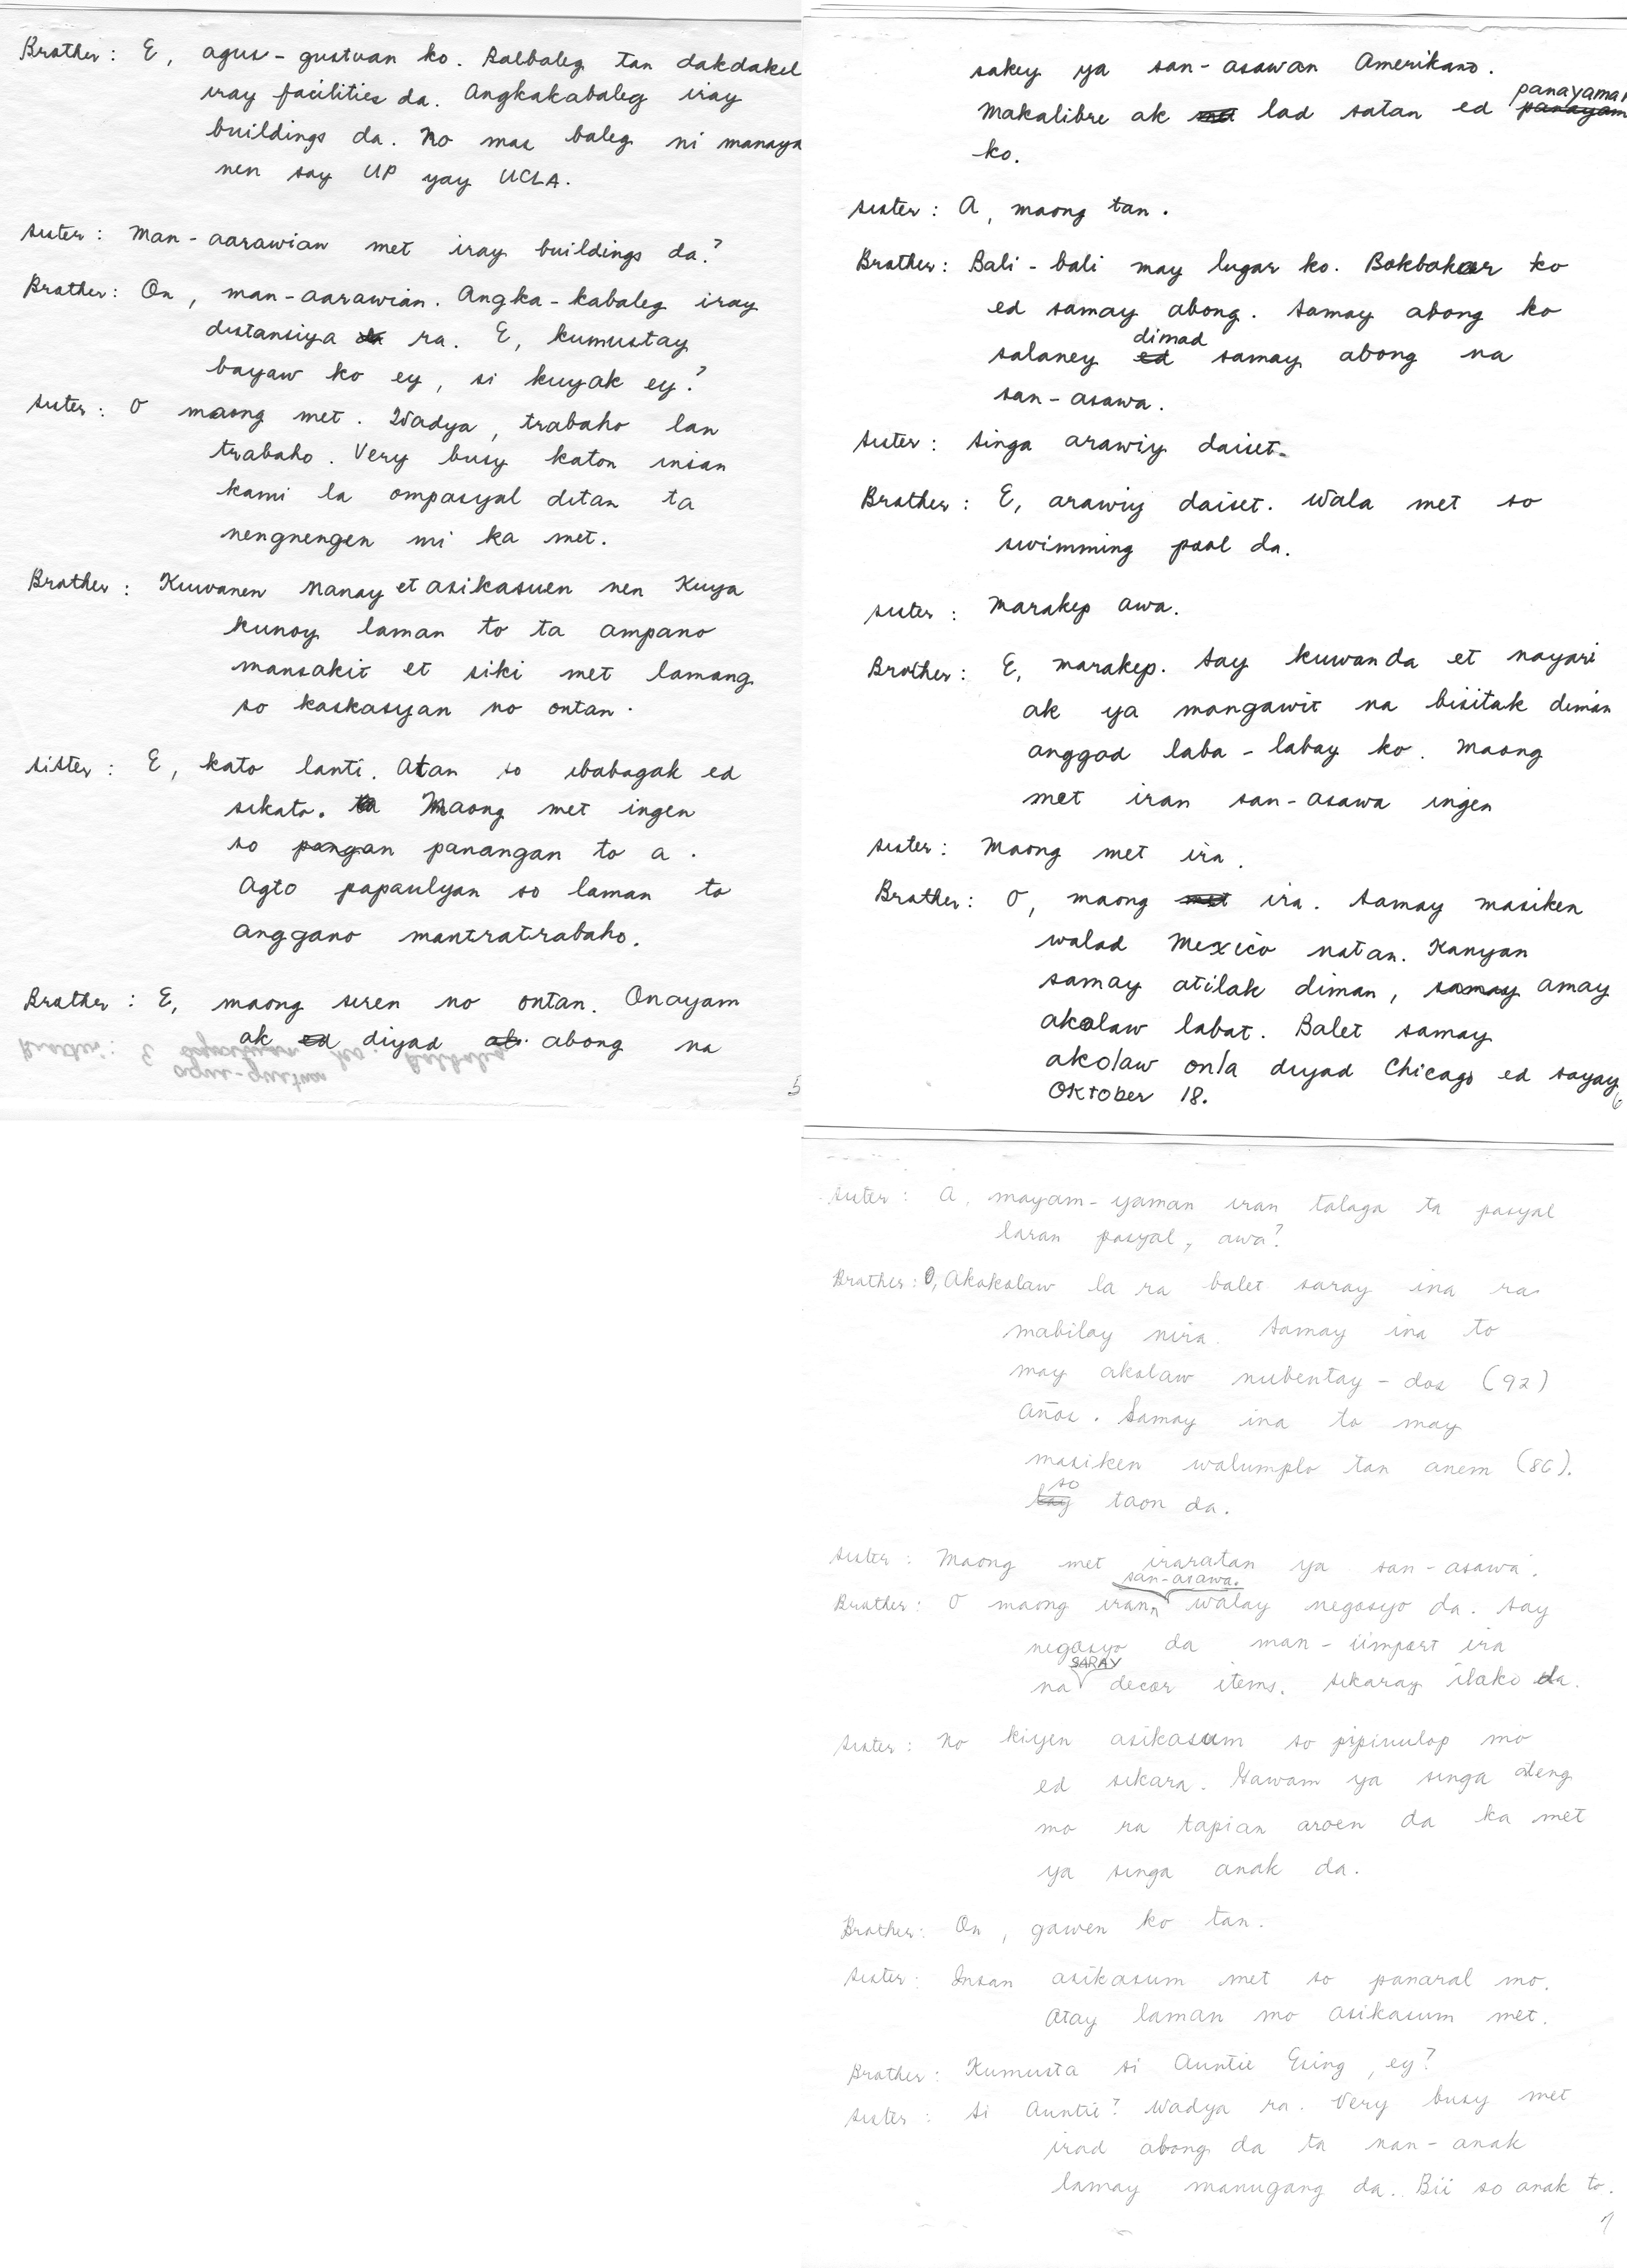 Brother: E, agus-gustuan ko. Balbaleg tan dakdakel
iray facilities da. Angkakabaleg iray
buildings da. No mas baleg ni manaya
nen say UP yay UCLA.
Sister: Man-aarawian met iray buildings da?
Brother: On, man-aarawian. Angka-kabaleg iray
distansiya ra. E, kumustay
bayaw ko ey, si kuyak ey?
Sister: O maong met. Wadya, trabaho lan
trabaho. Very busy katon insan
kami la ompasyal ditan ta
nengnengen mi ka met.
Brother: Kuwanen Nanay et asikasuen nen Kuya
kunoy laman to ta ampano
mansakit et siki met lamang
so kaskasyan no ontan.
Sister: E, kato lanti. Atan so ibabagak ed
sikato. Maong met ingen
so panangan to a.
Agto papaulyan so laman to
anggano mantratrabaho.
Brother: E, maong siren no ontan. Onayam
ak diyad abong na
5
sakey ya san-asawan Amerikano.
Makalibre ak lad satan ed panayaman
ko.
Sister: A, maong tan.
Brother: Bali-bali may lugar ko. Bokbokor ko
ed samay abong. Samay abong ko
salaney dimad samay abong na
san-asawa.
Sister: Singa arawiy daiset.
Brother: E, arawiy daiset. Wala met so
swimming pool da.
Sister: Marakep awa.
Brother: E, marakep. Say kuwan da et nayari
ak ya mangawit na bisitak diman
anggad laba-labay ko. Maong
met iran san-asawa ingen
Sister: Maong met ira.
Brother: O, maong ira. Samay masiken
walad Mexico natan. Kanyan
samay atilak diman, amay
akolaw labat. Balet samay
akolaw onla diyad Chicago ed sayay
Oktober 18.
6
Sister: A, mayam-yaman iran talaga ta pasyal
laran pasyal, awa?
Brother: O, Akokolaw la ra balet saray ina ra
mabilay nira. Samay ina to
may akolaw nubentay-dos (92)
años. Samay ina to may
masiken walumplo tan anem (86).
so taon da.
Sister: Maong met iraratan ya san-asawa.
Brother: O maong iran san-asawa. Walay negosyo da. Say
negosyo da man-iimport ira
na SARAY decor items. Sikaray ilako da.
Sister: No kiyen asikasum so pipinulop mo
ed sikara. Gawam ya singa ateng
mo ra tapian aroen da ka met
ya singa anak da.
Brother: On, gawen ko tan.
Sister: Insan asikasum met so panaral mo.
Atay laman mo asikasum met.
Brother: Kumusta si Auntie Esing, ey?
Sister: Si Auntie? Wadya ra. Very busy met
irad abong da ta nan-anak
lamay manugang da. Bii so anak to.
7